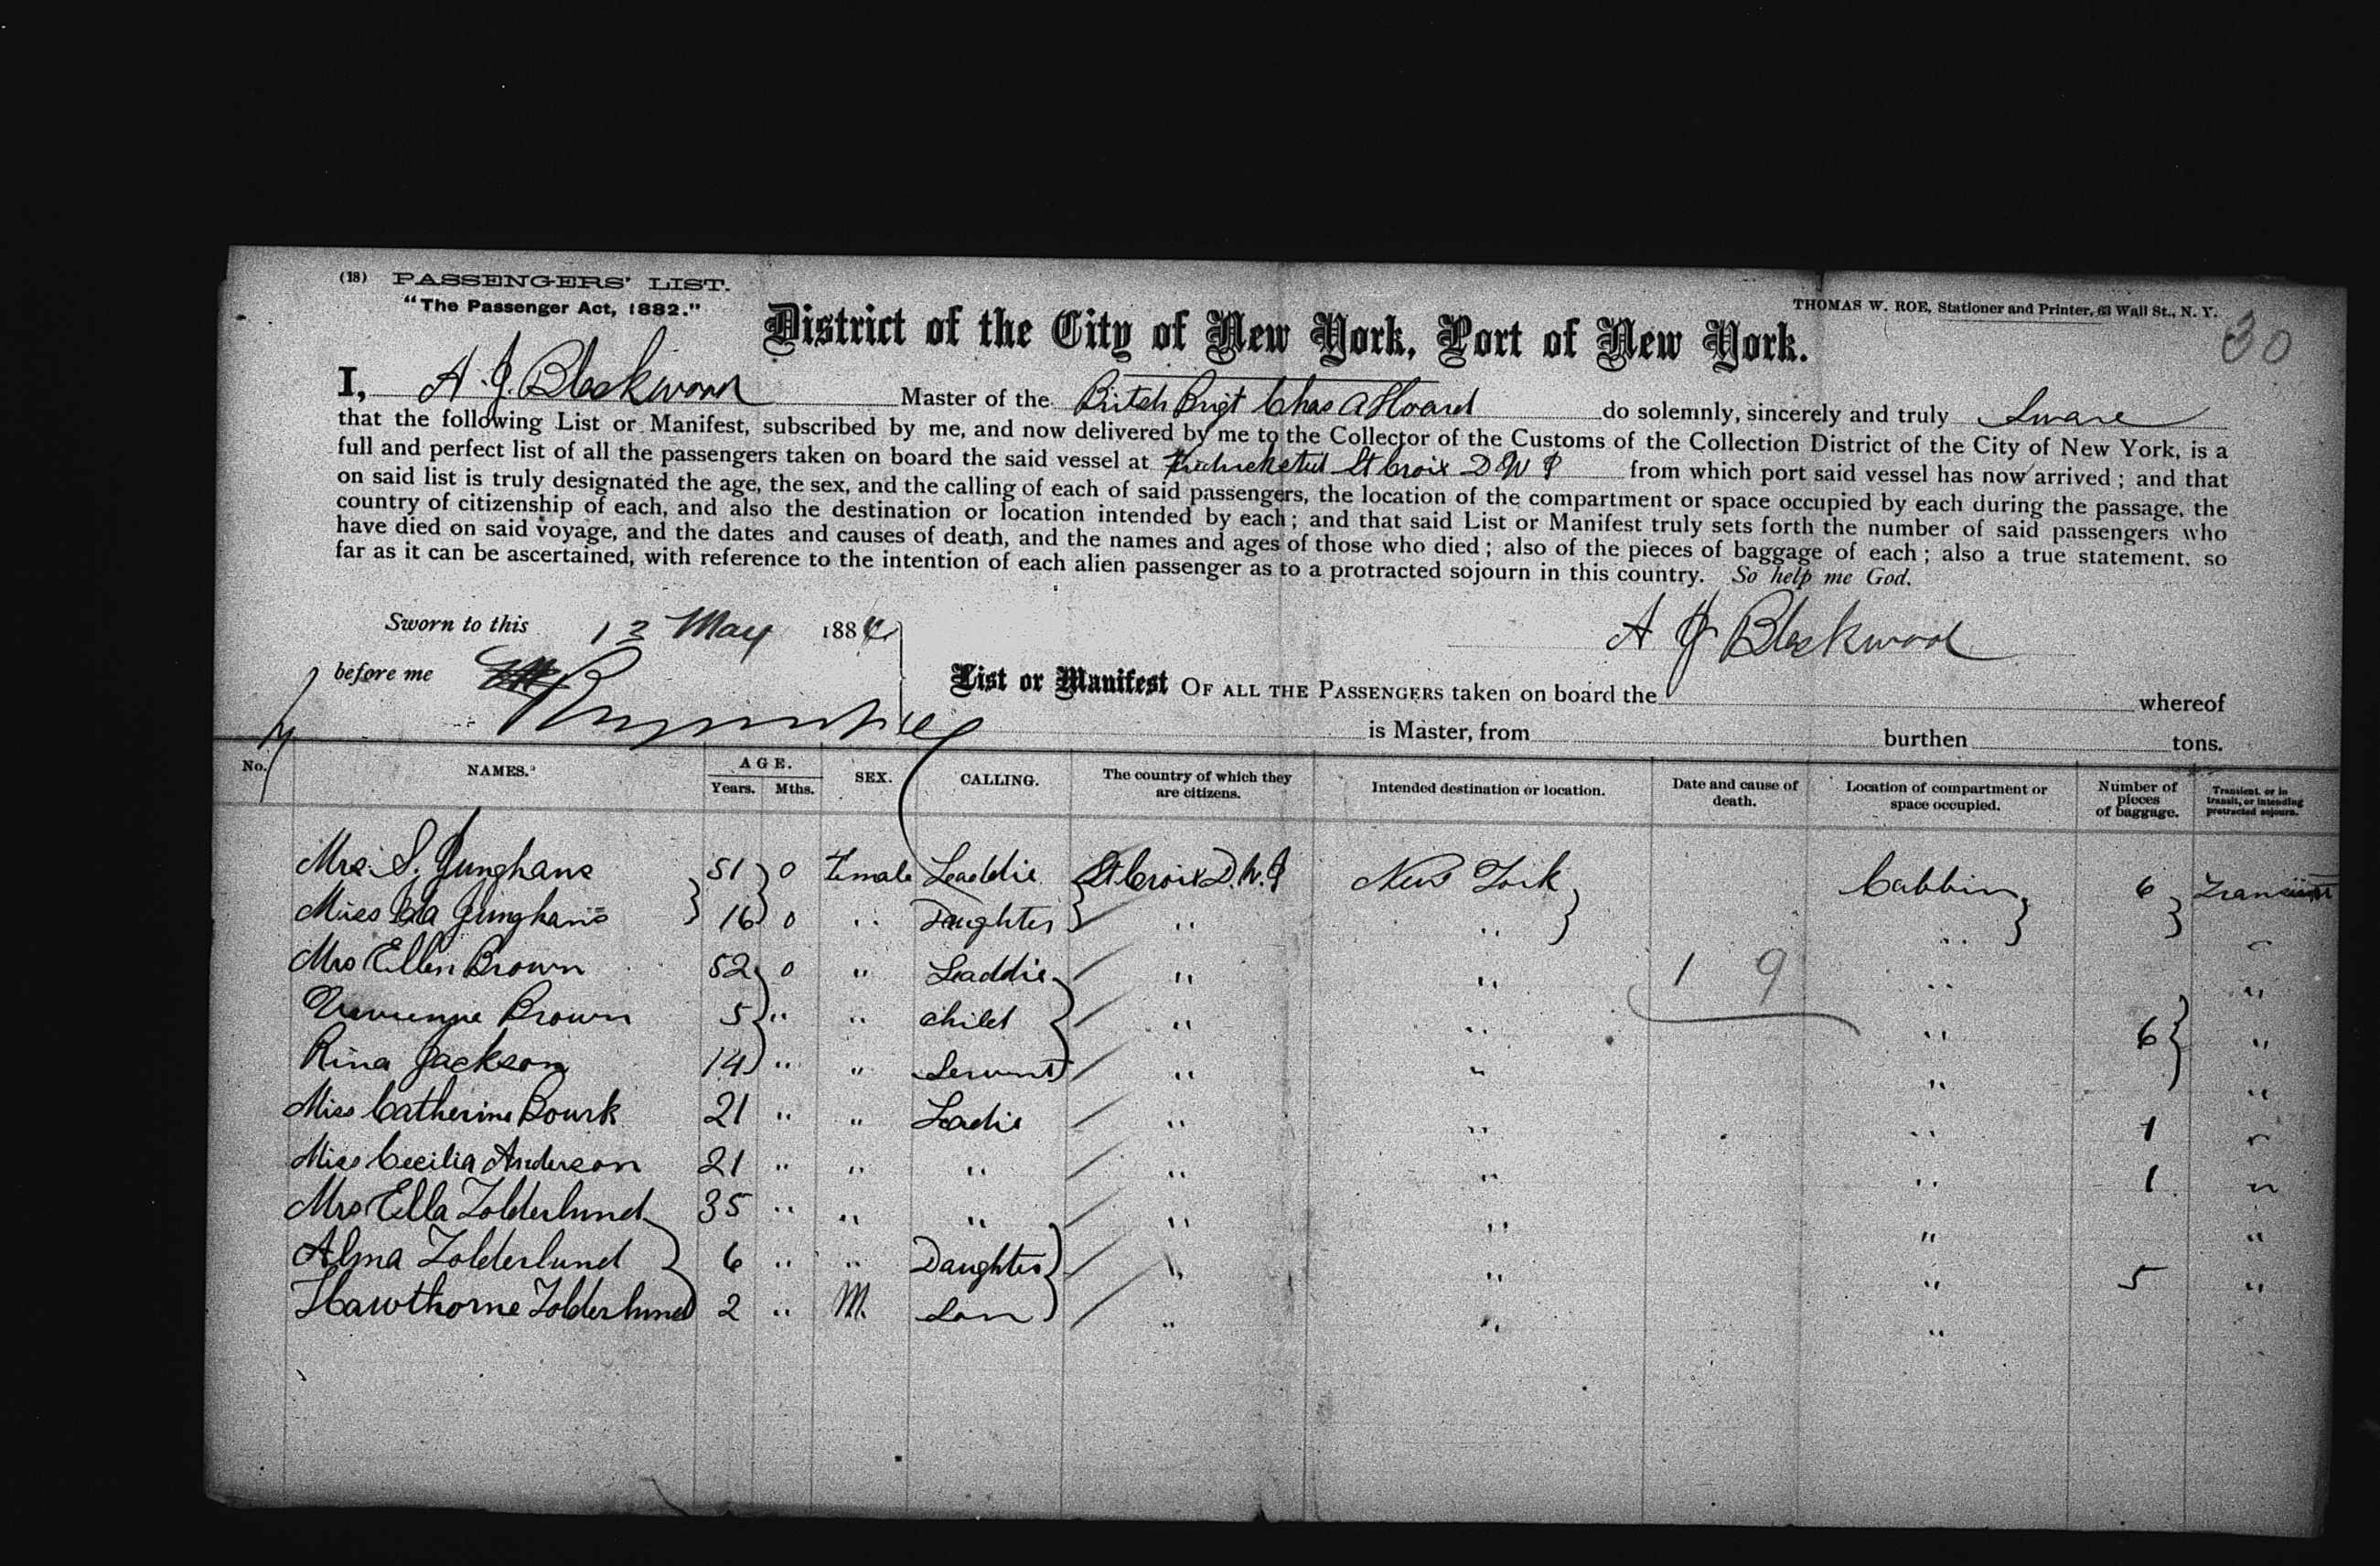 (18) PASSENGERS' LIST.
"The Passenger Act, 1882."
THOMAS W. ROE, Stationer and Printer, 63 Wall St., N. Y.
30
District of the City of New York, Port of New York.
I, A. J. Blackwood Master of the Britsh Brigt Chas A Hoard do solemnly, sincerely and truly Sware
that the following List or Manifest, subscribed by me, and now delivered by me to the Collector of the Customs of the Collection District of the City of New York, is a
full and perfect list of all the passengers taken on board the said vessel at St Croix D W I from which port said vessel has now arrived; and that
on said list is truly designated the age, the sex, and the calling of each of said passengers, the location of the compartment or space occupied by each during the passage, the
country of citizenship of each, and also the destination or location intended by each; and that said List or Manifest truly sets forth the number of said passengers who
have died on said voyage, and the dates and causes of death, and the names and ages of those who died; also of the pieces of baggage of each; also a true statement, so
far as it can be ascertained, with reference to the intention of each alien passenger as to a protracted sojourn in this country. So help me God.
Sworn to this 13 May 1884
A J Blackwood
before me
List or Manifest OF ALL THE PASSENGERS taken on board the whereof
is Master, from burthen tons.
No. NAMES. AGE. Years. Mths. SEX. CALLING. The country of which they are citizens. Intended destination or location. Date and cause of death. Location of compartment or space occupied. Number of pieces of baggage. Transient, or in transit, or intending protracted sojourn.
Mrs. S. Junghans 51 0 Female Laddie St Croix D. W. I New York Cabbin 6 Transient
Miss Ida Junghans 16 0 " Daughter " " "
Mrs Ellen Brown 52 0 " Laddie " " 1 9 " "
Brown 5 " " child " " " 6 "
Rina Jackson 14 " " Servant " " " "
Miss Catherine Bourk 21 " " Ladie " " " 1 "
Miss Cecilia Anderson 21 " " " " " " 1 "
Mrs Ella Zolderlund 35 " " " " " " "
Alma Zolderlund 6 " " Daughter " " " 5 "
Hawthorne Zolderlund 2 " M. Son " " "